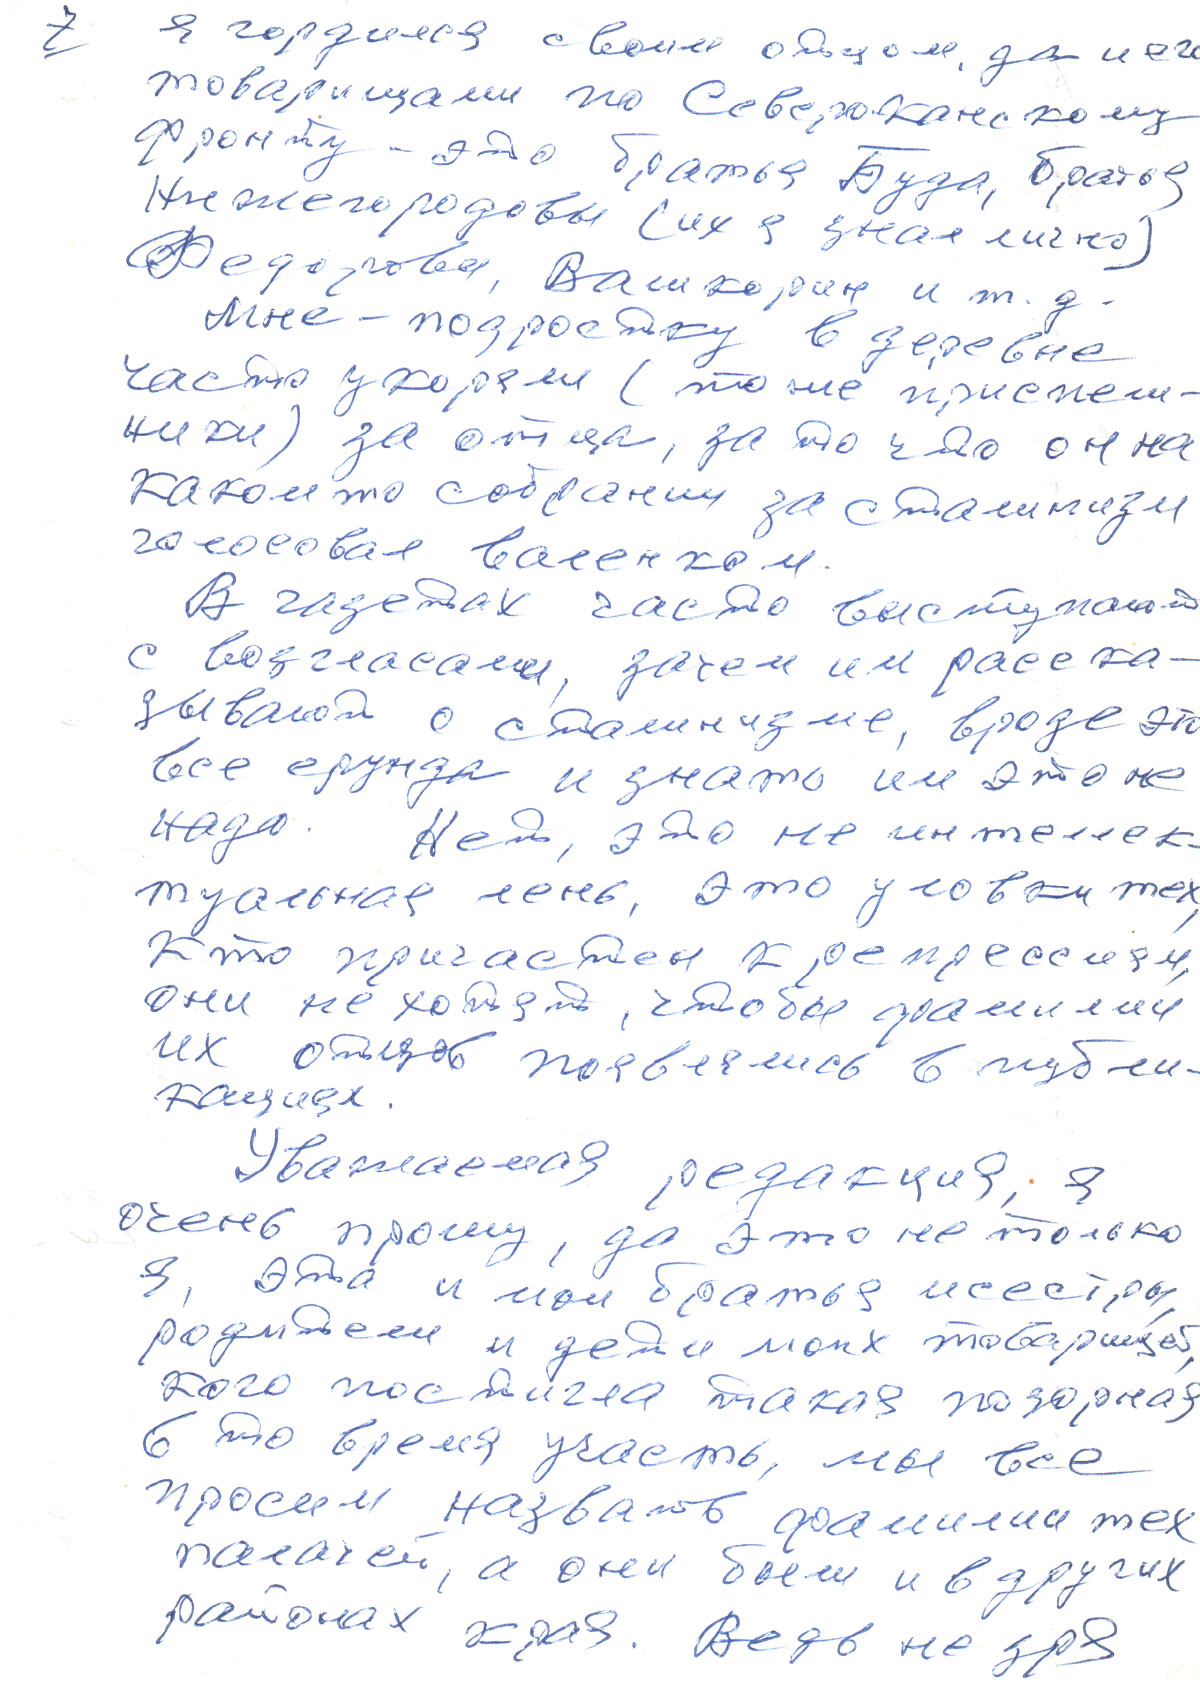 7 я гордился своим отцом, да и его
товарищами по Северо-Канскому
фронту - это братья Буда, братья
Нижегородовы (их я знал лично)
Федоровы, Вашкорин и т. д.
Мне - подростку в деревне
часто укоряли (те же приспеш-
ники) за отца, за то что он на
каком то собрании за сталинизм
голосовал валенком.
В газетах часто выступают
с возгласами, зачем им расска-
зывают о сталинизме, вроде это
все ерунда и знать им это не
надо. Нет, это не интеллек-
туальная лень, это уловки тех,
кто причастен к репрессиям,
они не хотят, чтобы фамилии
их отцов появились в публи-
кациях.
Уважаемая редакция, я
очень прошу, да это не только
я, эта и мои братья и сестры,
родители и дети моих товарищей,
кого постигла такая позорная
в то время участь, мы все
просим назвать фамилии тех
палачей, а они были и в других
районах края. Ведь не зря